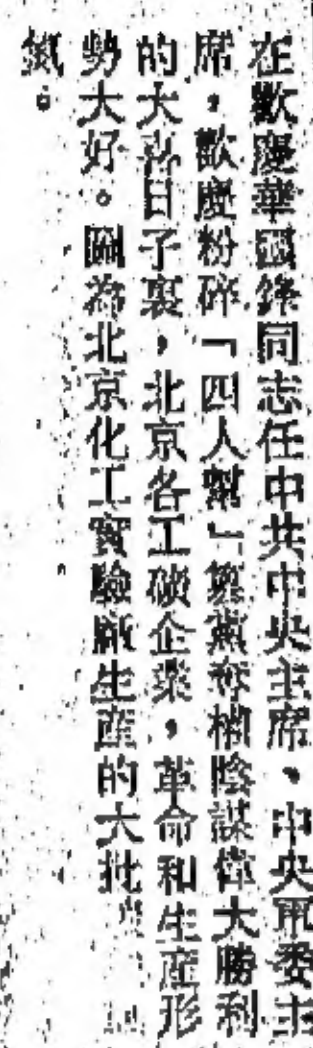 在歡慶華國鋒同志任中共中央主席、中央軍委主
席，歡慶粉碎「四人幫」篡黨奪權陰謀偉大勝利
的大喜日子裏，北京各工礦企業，革命和生産形
勢大好。圖為北京化工實驗廠生産的大批
氮。